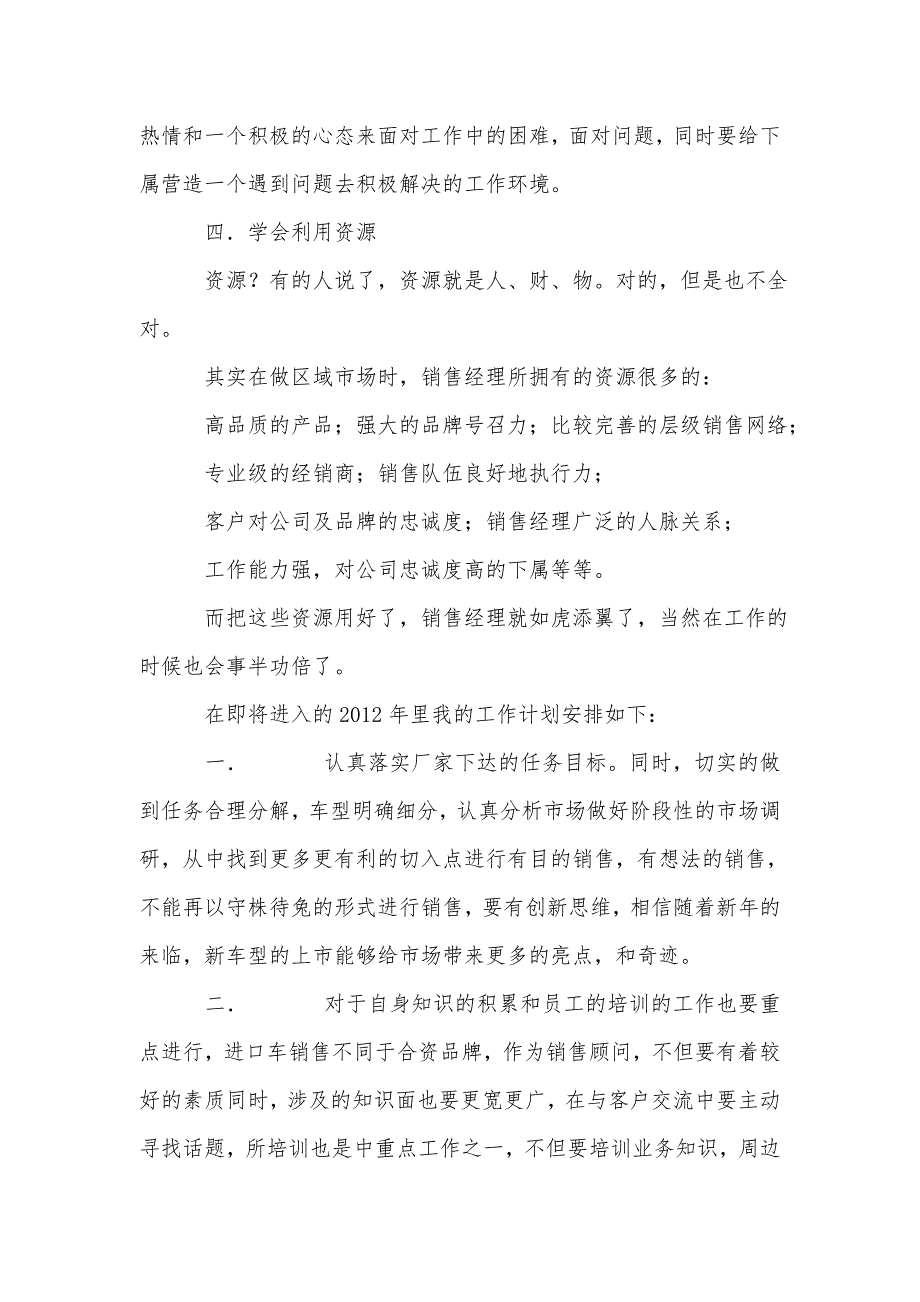 热情和一个积极的心态来面对工作中的困难，面对问题，同时要给下
属营造一个遇到问题去积极解决的工作环境。
四．学会利用资源
资源？有的人说了，资源就是人、财、物。对的，但是也不全
对。
其实在做区域市场时，销售经理所拥有的资源很多的：
高品质的产品；强大的品牌号召力；比较完善的层级销售网络；
专业级的经销商；销售队伍良好地执行力；
客户对公司及品牌的忠诚度；销售经理广泛的人脉关系；
工作能力强，对公司忠诚度高的下属等等。
而把这些资源用好了，销售经理就如虎添翼了，当然在工作的
时候也会事半功倍了。
在即将进入的 2012 年里我的工作计划安排如下：
一． 认真落实厂家下达的任务目标。同时，切实的做
到任务合理分解，车型明确细分，认真分析市场做好阶段性的市场调
研，从中找到更多更有利的切入点进行有目的销售，有想法的销售，
不能再以守株待兔的形式进行销售，要有创新思维，相信随着新年的
来临，新车型的上市能够给市场带来更多的亮点，和奇迹。
二． 对于自身知识的积累和员工的培训的工作也要重
点进行，进口车销售不同于合资品牌，作为销售顾问，不但要有着较
好的素质同时，涉及的知识面也要更宽更广，在与客户交流中要主动
寻找话题，所培训也是中重点工作之一，不但要培训业务知识，周边